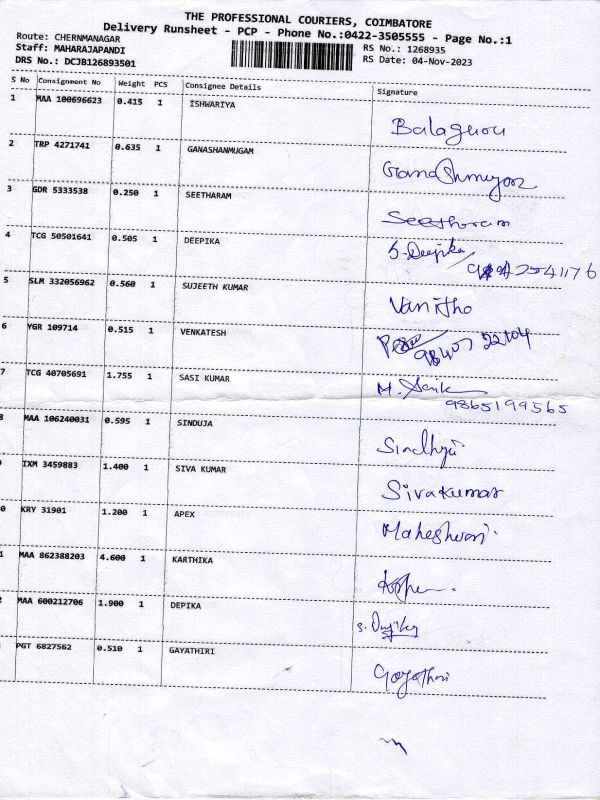 THE PROFESSIONAL COURIERS, COIMBATORE
Delivery Runsheet - PCP - Phone No.:0422-3505555 - Page No.:1
Route: CHERNMANAGAR
Staff: MAHARAJAPANDI
RS No.: 1268935
DRS No.: DCJB126893501
RS Date: 04-Nov-2023
S No Consignment No Weight PCS Consignee Details Signature
1 MAA 100696623 0.415 1 ISHWARIYA
2 TRP 4271741 0.635 1 GANASHANMUGAM
3 GDR 5333538 0.250 1 SEETHARAM Seetharam
4 TCG 50501641 0.505 1 DEEPIKA S. Deepika
5 SLM 332056962 0.560 1 SUJEETH KUMAR Vanitha
6 YGR 109714 0.515 1 VENKATESH
98407 22104
7 TCG 40705691 1.755 1 SASI KUMAR
9865199565
8 MAA 106240031 0.595 1 SINDUJA Sindhuja
9 IXM 3459883 1.400 1 SIVA KUMAR Sivakumar
0 KRY 31901 1.200 1 APEX Maheshwari.
1 MAA 862388203 4.600 1 KARTHIKA
2 MAA 600212706 1.900 1 DEPIKA
PGT 6827562 0.510 1 GAYATHIRI Gayathri